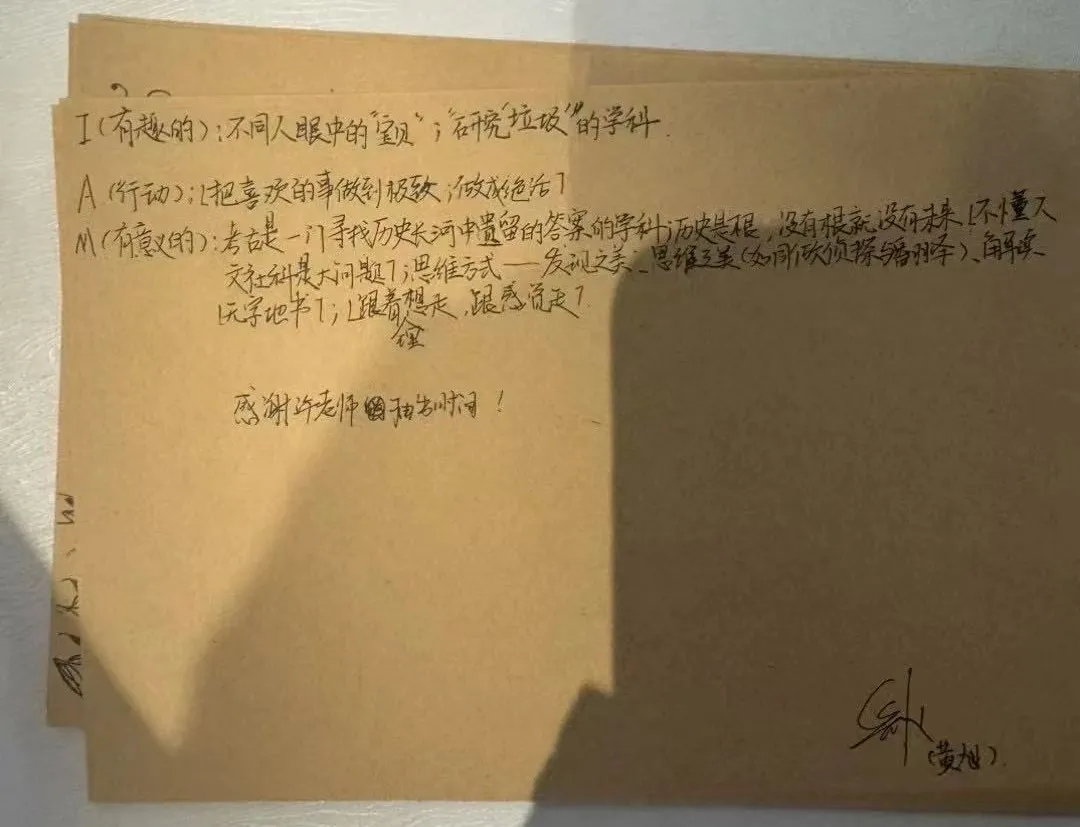 I（有趣的）：不同人眼中的"宝贝"；"研究'垃圾'"的学科.
A（行动）：「把喜欢的事做到极致；做成绝活」
M（有意义的）：考古是一门寻找历史长河中遗留的答案的学科；历史是根，没有根就没有未来「不懂人
文社科是大问题」；思维方式——发现之美、思维之美（如同做侦探与翻译）、解读
「无字地书」；「跟着想走，跟感觉走」.
感谢许老师抽出时间！
（黄旭）